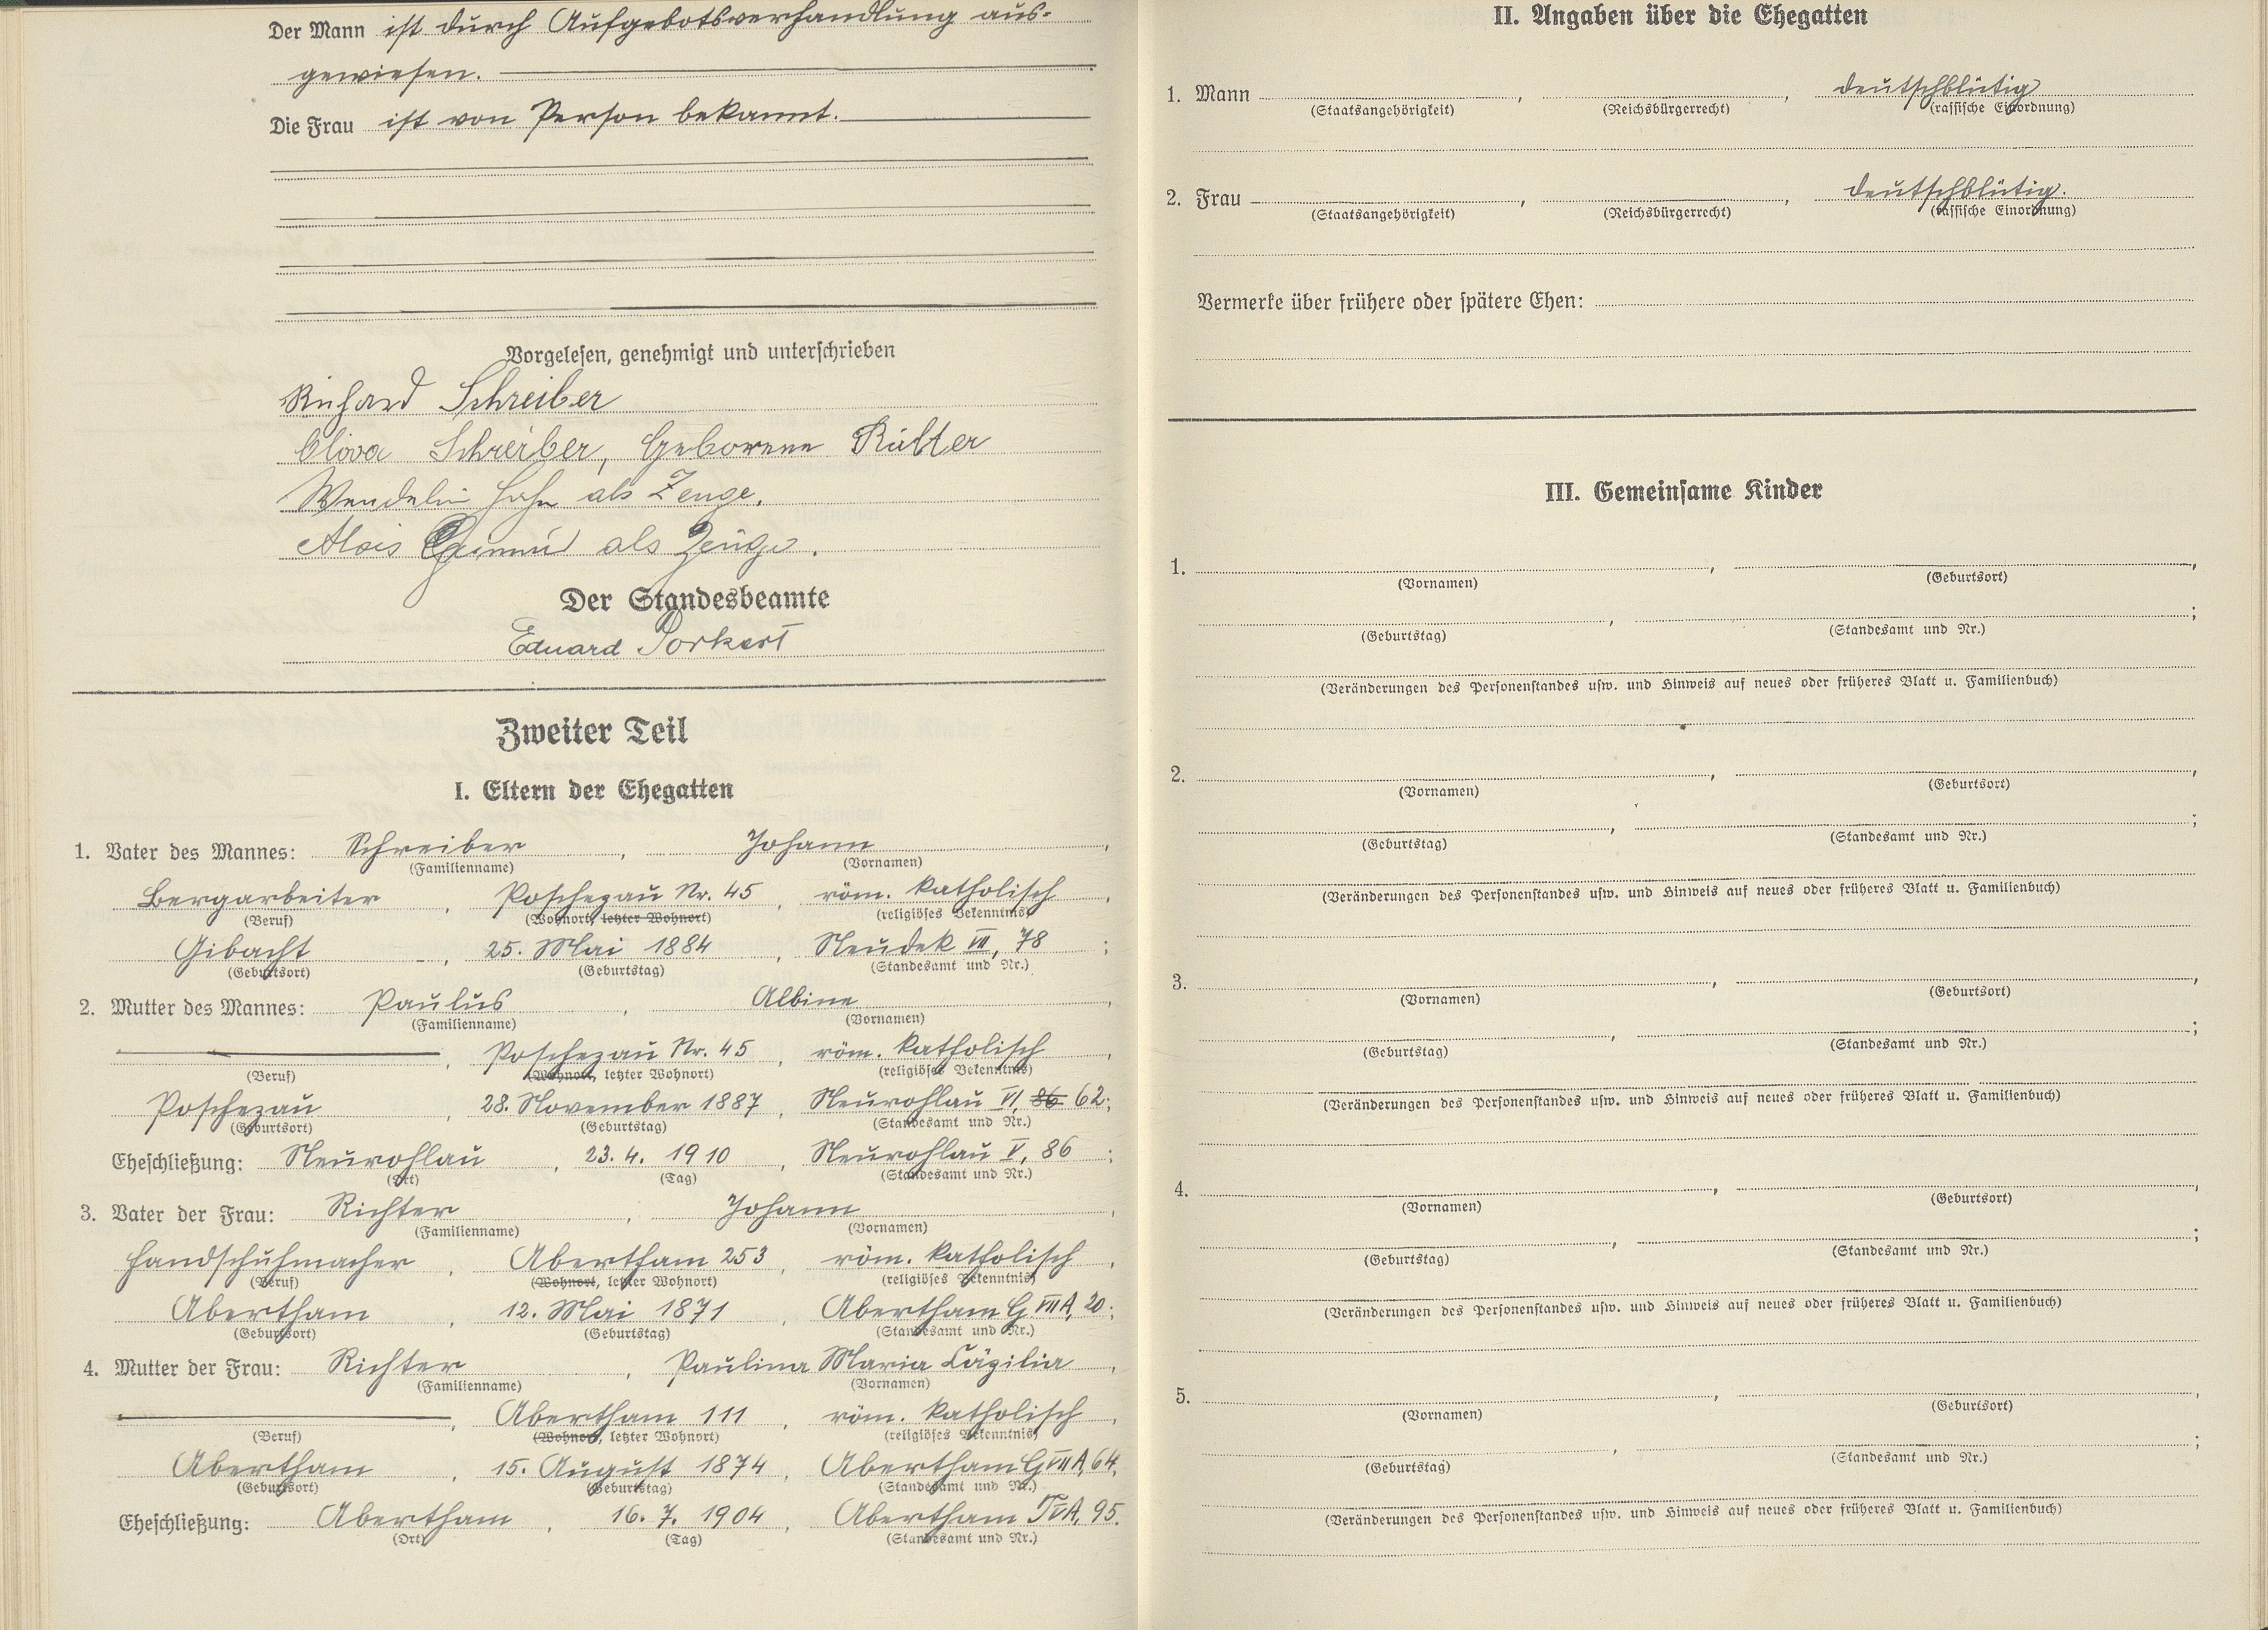 Der Mann ist durch Aufgebotsverhandlung aus-
gewiesen.
Die Frau ist von Person bekannt.
Vorgelesen, genehmigt und unterschrieben
Richard Schreiber
Schreiber, Geborene
Wendelin Hahn als Zeuge.
Alois als Zeuge.
Der Standesbeamte
Eduard Porkert
Zweiter Teil
I. Eltern der Ehegatten
1. Vater des Mannes: Schreiber, Johann,
(Familienname) (Vornamen)
Bergarbeiter, Poschezau Nr. 45, röm. katholisch,
(Beruf) (Wohnort, letzter Wohnort) (religiöses Bekenntnis)
Gibacht, 25. Mai 1884, Neudek VII, 78;
(Geburtsort) (Geburtstag) (Standesamt und Nr.)
2. Mutter des Mannes: Paulus, Albine,
(Familienname) (Vornamen)
, Poschezau Nr. 45, röm. katholisch,
(Beruf) (Wohnort, letzter Wohnort) (religiöses Bekenntnis)
Poschezau, 28. November 1887, Neurohlau VI, 86 62;
(Geburtsort) (Geburtstag) (Standesamt und Nr.)
Eheschließung: Neurohlau, 23. 4. 1910, Neurohlau V, 86;
(Ort) (Tag) (Standesamt und Nr.)
3. Vater der Frau: Richter, Johann,
(Familienname) (Vornamen)
Handschuhmacher, Abertham 253, röm. katholisch,
(Beruf) (Wohnort, letzter Wohnort) (religiöses Bekenntnis)
Abertham, 12. Mai 1871, Abertham G VII A, 20;
(Geburtsort) (Geburtstag) (Standesamt und Nr.)
4. Mutter der Frau: Richter, Paulina Maria Cäzilia,
(Familienname) (Vornamen)
, Abertham 111, röm. katholisch,
(Beruf) (Wohnort, letzter Wohnort) (religiöses Bekenntnis)
Abertham, 15. August 1874, Abertham G VII A, 64,
(Geburtsort) (Geburtstag) (Standesamt und Nr.)
Eheschließung: Abertham, 16. 7. 1904, Abertham T V A, 95.
(Ort) (Tag) (Standesamt und Nr.)
II. Angaben über die Ehegatten
1. Mann , , deutschblütig
(Staatsangehörigkeit) (Reichsbürgerrecht) (rassische Einordnung)
2. Frau , , deutschblütig.
(Staatsangehörigkeit) (Reichsbürgerrecht) (rassische Einordnung)
Vermerke über frühere oder spätere Ehen:
III. Gemeinsame Kinder
1. , ,
(Vornamen) (Geburtsort)
, ;
(Geburtstag) (Standesamt und Nr.)
(Veränderungen des Personenstandes usw. und Hinweis auf neues oder früheres Blatt u. Familienbuch)
2. , ,
(Vornamen) (Geburtsort)
, ;
(Geburtstag) (Standesamt und Nr.)
(Veränderungen des Personenstandes usw. und Hinweis auf neues oder früheres Blatt u. Familienbuch)
3. , ,
(Vornamen) (Geburtsort)
, ;
(Geburtstag) (Standesamt und Nr.)
(Veränderungen des Personenstandes usw. und Hinweis auf neues oder früheres Blatt u. Familienbuch)
4. , ,
(Vornamen) (Geburtsort)
, ;
(Geburtstag) (Standesamt und Nr.)
(Veränderungen des Personenstandes usw. und Hinweis auf neues oder früheres Blatt u. Familienbuch)
5. , ,
(Vornamen) (Geburtsort)
, ;
(Geburtstag) (Standesamt und Nr.)
(Veränderungen des Personenstandes usw. und Hinweis auf neues oder früheres Blatt u. Familienbuch)